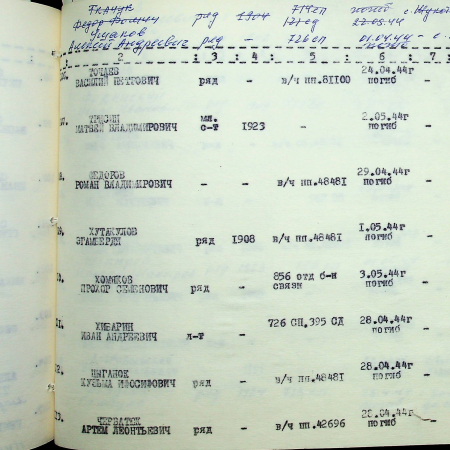 Ткачук
ряд 1904 714сп погиб с. Жуков
121 сд 22.03.44
Ушаков
Алексей Андреевич ряд - 726 сп 01.04.44
: 2 : 3 : 4 : 5 : 6 : 7 :
ВАСИЛИЙ ПЕТРОВИЧ ряд - в/ч пп.81100 24.04.44г
погиб -
мл. 2.05.44г
ВЛАДИМИРОВИЧ с-т 1923 - погиб -
ФЕДОРОВ 29.04.44г
РОМАН ВЛАДИМИРОВИЧ - - в/ч пп.48481 погиб -
ХУТАКУЛОВ 1.05.44г
ЭГАМБЕРДИ ряд 1908 в/ч пп.48481 погиб -
ХОМЯКОВ 856 отд б-н 3.05.44г
ПРОХОР СЕМЕНОВИЧ ряд - связи погиб -
726 СП.395 СД 28.04.44г
ИВАН АНДРЕЕВИЧ л-т - погиб -
ЦЫГАНОК 28.04.44г
КУЗЬМА ИФОСИФОВИЧ ряд - в/ч пп.48481 погиб -
28.04.44г
АРТЕМ ЛЕОНТЬЕВИЧ ряд - в/ч пп.42696 погиб -